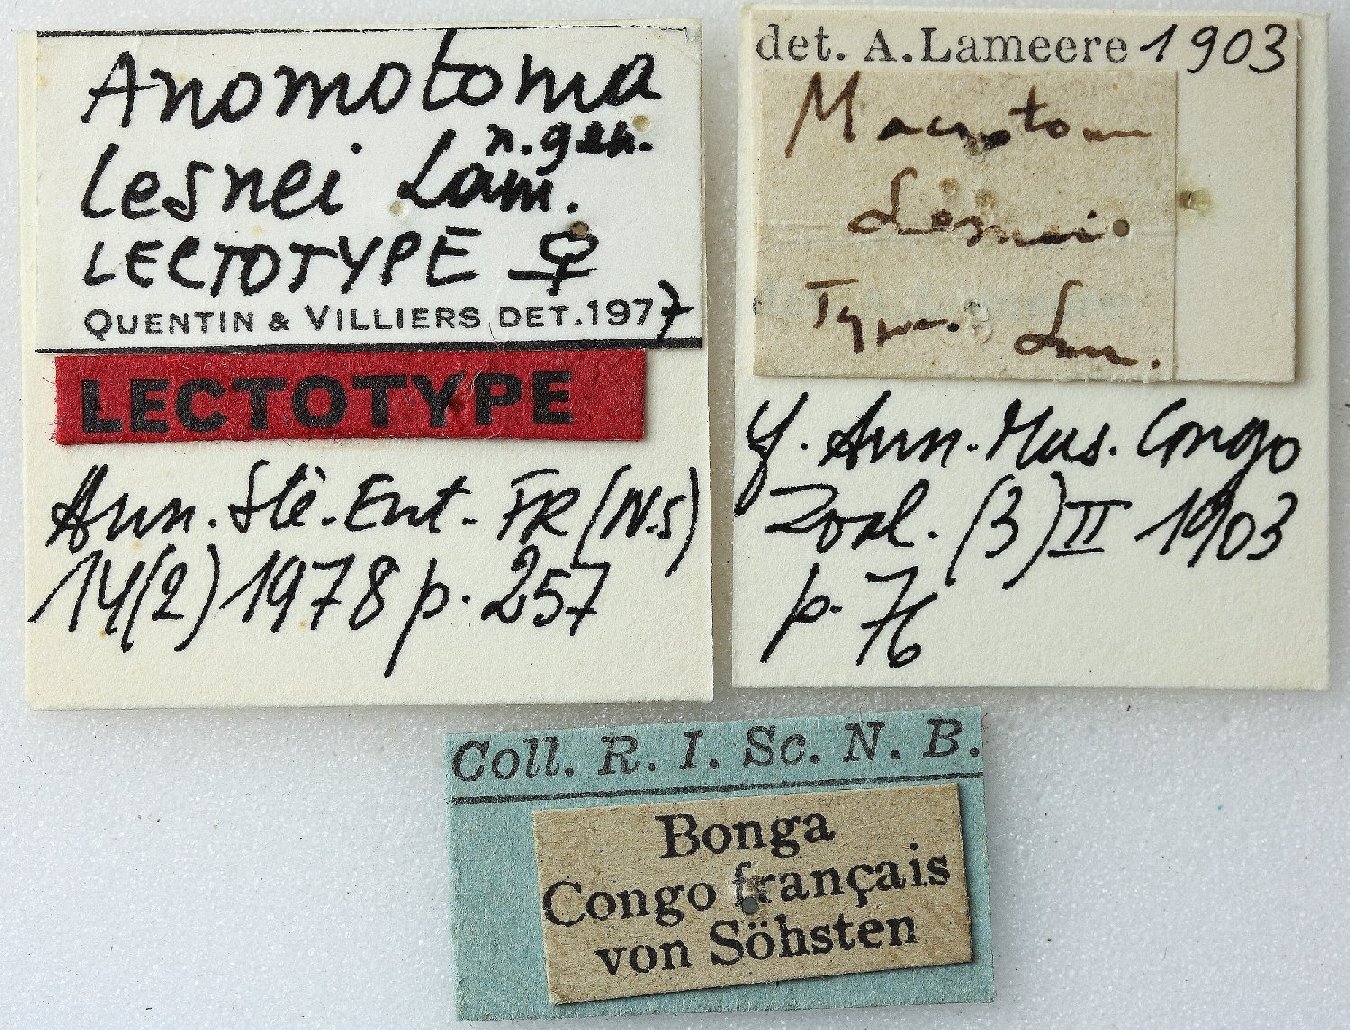 Anomotoma
n.gen.
Lesnei Lam.
LECTOTYPE ♀
QUENTIN & VILLIERS DET.1977
LECTOTYPE
Ann. Sté. Ent. FR (N.S)
14(2) 1978 p. 257
det. A. Lameere 1903
Macrotoma
Lesnei
Type. Lam.
Ann. Mus. Congo
Zool. (3) II 1903
p. 76
Coll. R. I. Sc. N. B.
Bonga
Congo français
von Söhsten